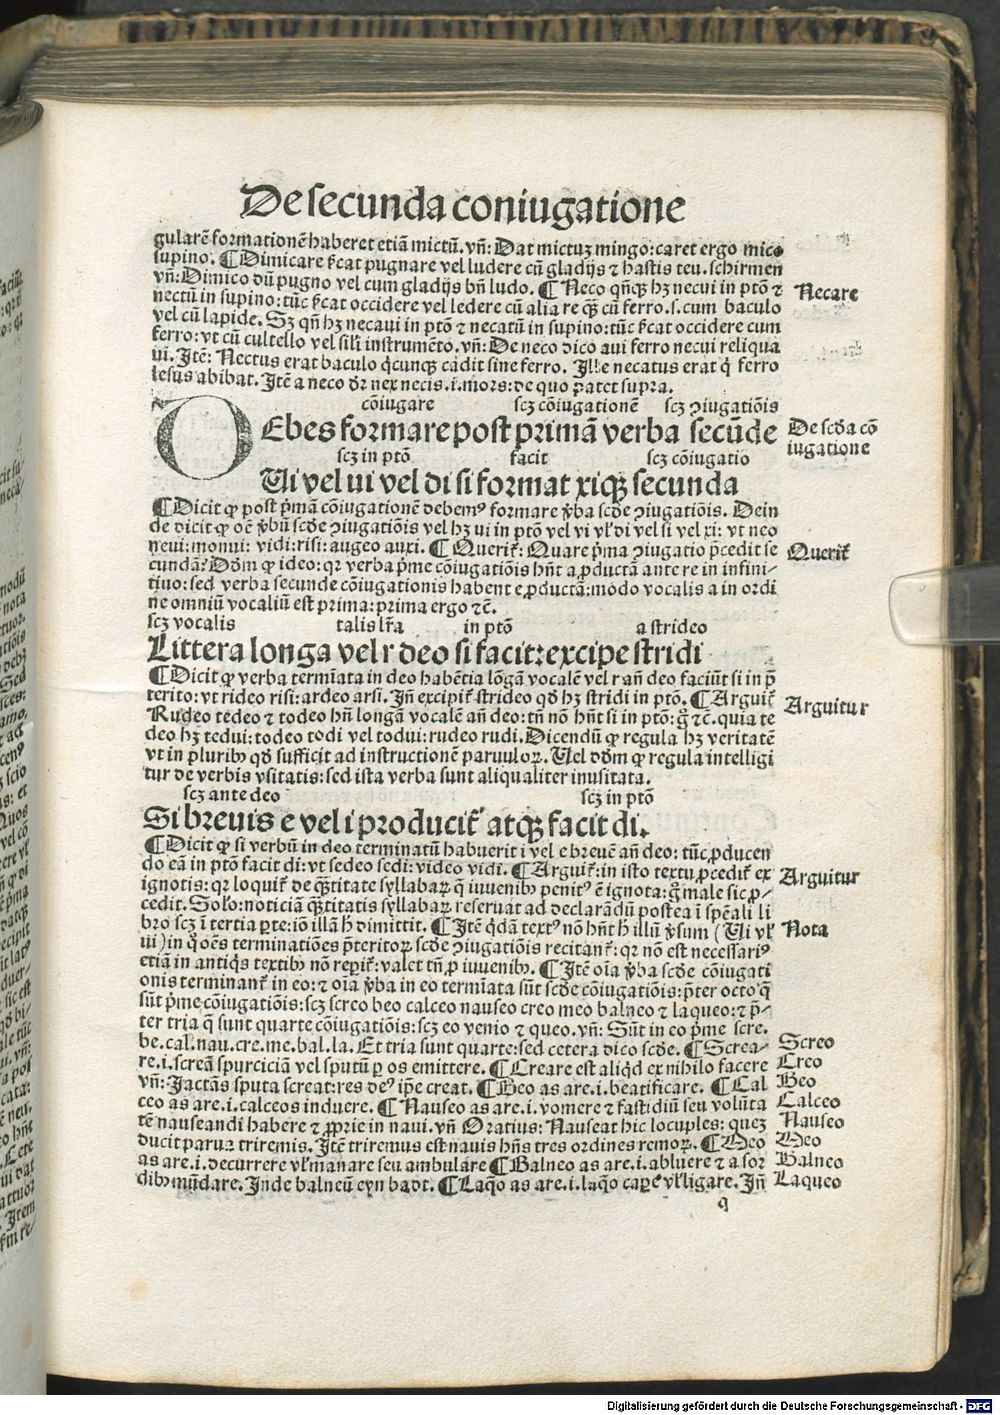 De secunda coniugatione
gularē formationē haberet etiā mictū. vñ: Dat mictuꝫ mingo: caret ergo mico
supino. ¶ Dimicare ẜcat pugnare vel ludere cū gladijs ⁊ hastis teu. schirmen
vñ: Dimico dū pugno vel cum gladijs bñ ludo. ¶ Neco qñqꝫ hꝫ necui in ptō ⁊
nectū in supino: tūc ẜcat occidere vel ledere cū alia re qꝫ cū ferro. s. cum baculo
vel cū lapide. Sꝫ qñ hꝫ necaui in ptō ⁊ necatū in supino: tūc ẜcat occidere cum
ferro: vt cū cultello vel sili instrumēto. vñ: De neco dico aui ferro necui reliqua
ui. Itē: Nectus erat baculo qͥcunqꝫ cadit sine ferro. Ille necatus erat qͥ ferro
lesus abibat. Itē a neco dr̄ nex necis. i. mors: de quo patet supra.
cōiugare scꝫ cōiugationē scꝫ ꝯiugatiōis
DEbes formare post primā verba secūde
scꝫ in ptō facit scꝫ cōiugatio
Ui vel ui vel di si format xiqꝫ secunda
¶ Dicit ꝙ post pͥmā cōiugationē debemꝰ formare v̓ba scd̓e ꝯiugatiōis. Dein
de dicit ꝙ oē v̓bū scd̓e ꝯiugatiōis vel hꝫ ui in ptō vel vi vl̓ di vel si vel xi: vt neo
neui: monui: vidi: risi: augeo auxi. ¶ Querit̓: Quare pͥma ꝯiugatio p̄cedit se
cundā? Dōm ꝙ ideo: qꝛ verba pͥme cōiugatiōis hn̄t a ꝓductā ante re in infini-
tiuo: sed verba secunde cōiugationis habent e ꝓductā: modo vocalis a in ordi
ne omniū vocaliū est prima: prima ergo ⁊c̄.
scꝫ vocalis talis lr̄a in ptō a strideo
Littera longa vel r deo si facit: excipe stridi
¶ Dicit ꝙ verba termīata in deo habētia lōgā vocalē vel r añ deo faciūt si in p̄
terito: vt rideo risi: ardeo arsi. Iñ excipit̓ strideo qd̓ hꝫ stridi in ptō. ¶ Arguit̓
Rudeo tedeo ⁊ todeo hñ longā vocalē añ deo: tñ nō hñt si in ptō: gͦ ⁊c̄. quia te
deo hꝫ tedui: todeo todi vel todui: rudeo rudi. Dicendū ꝙ regula hꝫ veritatē
vt in pluribꝰ qd̓ sufficit ad instructionē paruuloꝝ. Uel dōm ꝙ regula intelligi
tur de verbis vsitatis: sed ista verba sunt aliqualiter inusitata.
scꝫ ante deo scꝫ in ptō
Si breuis e vel i producit̓ atqꝫ facit di.
¶ Dicit ꝙ si verbū in deo terminatū habuerit i vel e breuē añ deo: tūc ꝓducen
do eā in ptō facit di: vt sedeo sedi: video vidi. ¶ Arguit̓: in isto textu ꝓcedit̓ ex
ignotis: qꝛ loquit̓ de qͣtitate syllabaꝝ q̄ iuuenibꝰ penitꝰ ē ignota: gͦ male sic ꝓ-
cedit. Solo: noticiā qͣtitatis syllabaꝝ reseruat ad declarādū postea ī sp̄eali li
bro scꝫ ī tertia ꝑte: iō illā h̓ dimittit. ¶ Itē qͥdā textꝰ nō hñt h̓ illū v̓sum (Ui vl̓
ui) in qͦ oēs terminatiōes p̄teritoꝝ scd̓e ꝯiugatiōis recitant̓: qꝛ nō est necessariꝰ
etiā in antiqͥs textibꝰ nō reperit̓: valet tñ ꝓ iuuenibꝰ. ¶ Itē oīa v̓ba scd̓e cōiugati
onis terminant̓ in eo: ⁊ oīa v̓ba in eo termīata sūt scd̓e cōiugatiōis: p̄ter octo q̄
sūt pͥme cōiugatiōis: scꝫ screo beo calceo nauseo creo meo balneo ⁊ laqueo: ⁊ p̄-
ter tria q̄ sunt quarte cōiugatiōis: scꝫ eo venio ⁊ queo. vñ: Sūt in eo pͥme scre.
be. cal. nau. cre. me. bal. la. Et tria sunt quarte: sed cetera dico scd̓e. ¶ Screa-
re. i. screā spurciciā vel sputū ꝑ os emittere. ¶ Creare est aliqͥd ex nihilo facere
vñ: Iactās sputa screat: res deꝰ ip̄e creat. ¶ Beo as are. i. beatificare. ¶ Cal
ceo as are. i. calceos induere. ¶ Nauseo as are. i. vomere ⁊ fastidiū seu volūta
tē nauseandi habere ⁊ ꝓprie in naui. vñ Oratius: Nauseat hic locuples: queꝫ
ducit paruꝝ triremis. Itē triremus est nauis hñs tres ordines remoꝝ. ¶ Meo
as are. i. decurrere vl̓ manare seu ambulare ¶ Balneo as are. i. abluere ⁊ a sor
dibꝰ mūdare. Inde balneū eyn badt. ¶ Laqͦo as are. i. laqͦo capere vl̓ ligare. Iñ
q
Necare
De scd̓a cō
iugatione
Querit̓
Arguitur
Arguitur
Nota
Screo
Creo
Beo
Calceo
Nauseo
Meo
Balneo
Laqueo
Digitalisierung gefördert durch die Deutsche Forschungsgemeinschaft - DFG